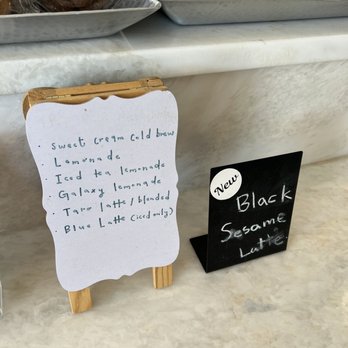 · Sweet cream cold brew
· Lamonade
· Iced tea lemonade
· Galaxy lemonade
· Taro latte / blended
· Blue Latte (iced only)
New
Black
Sesame
Latte